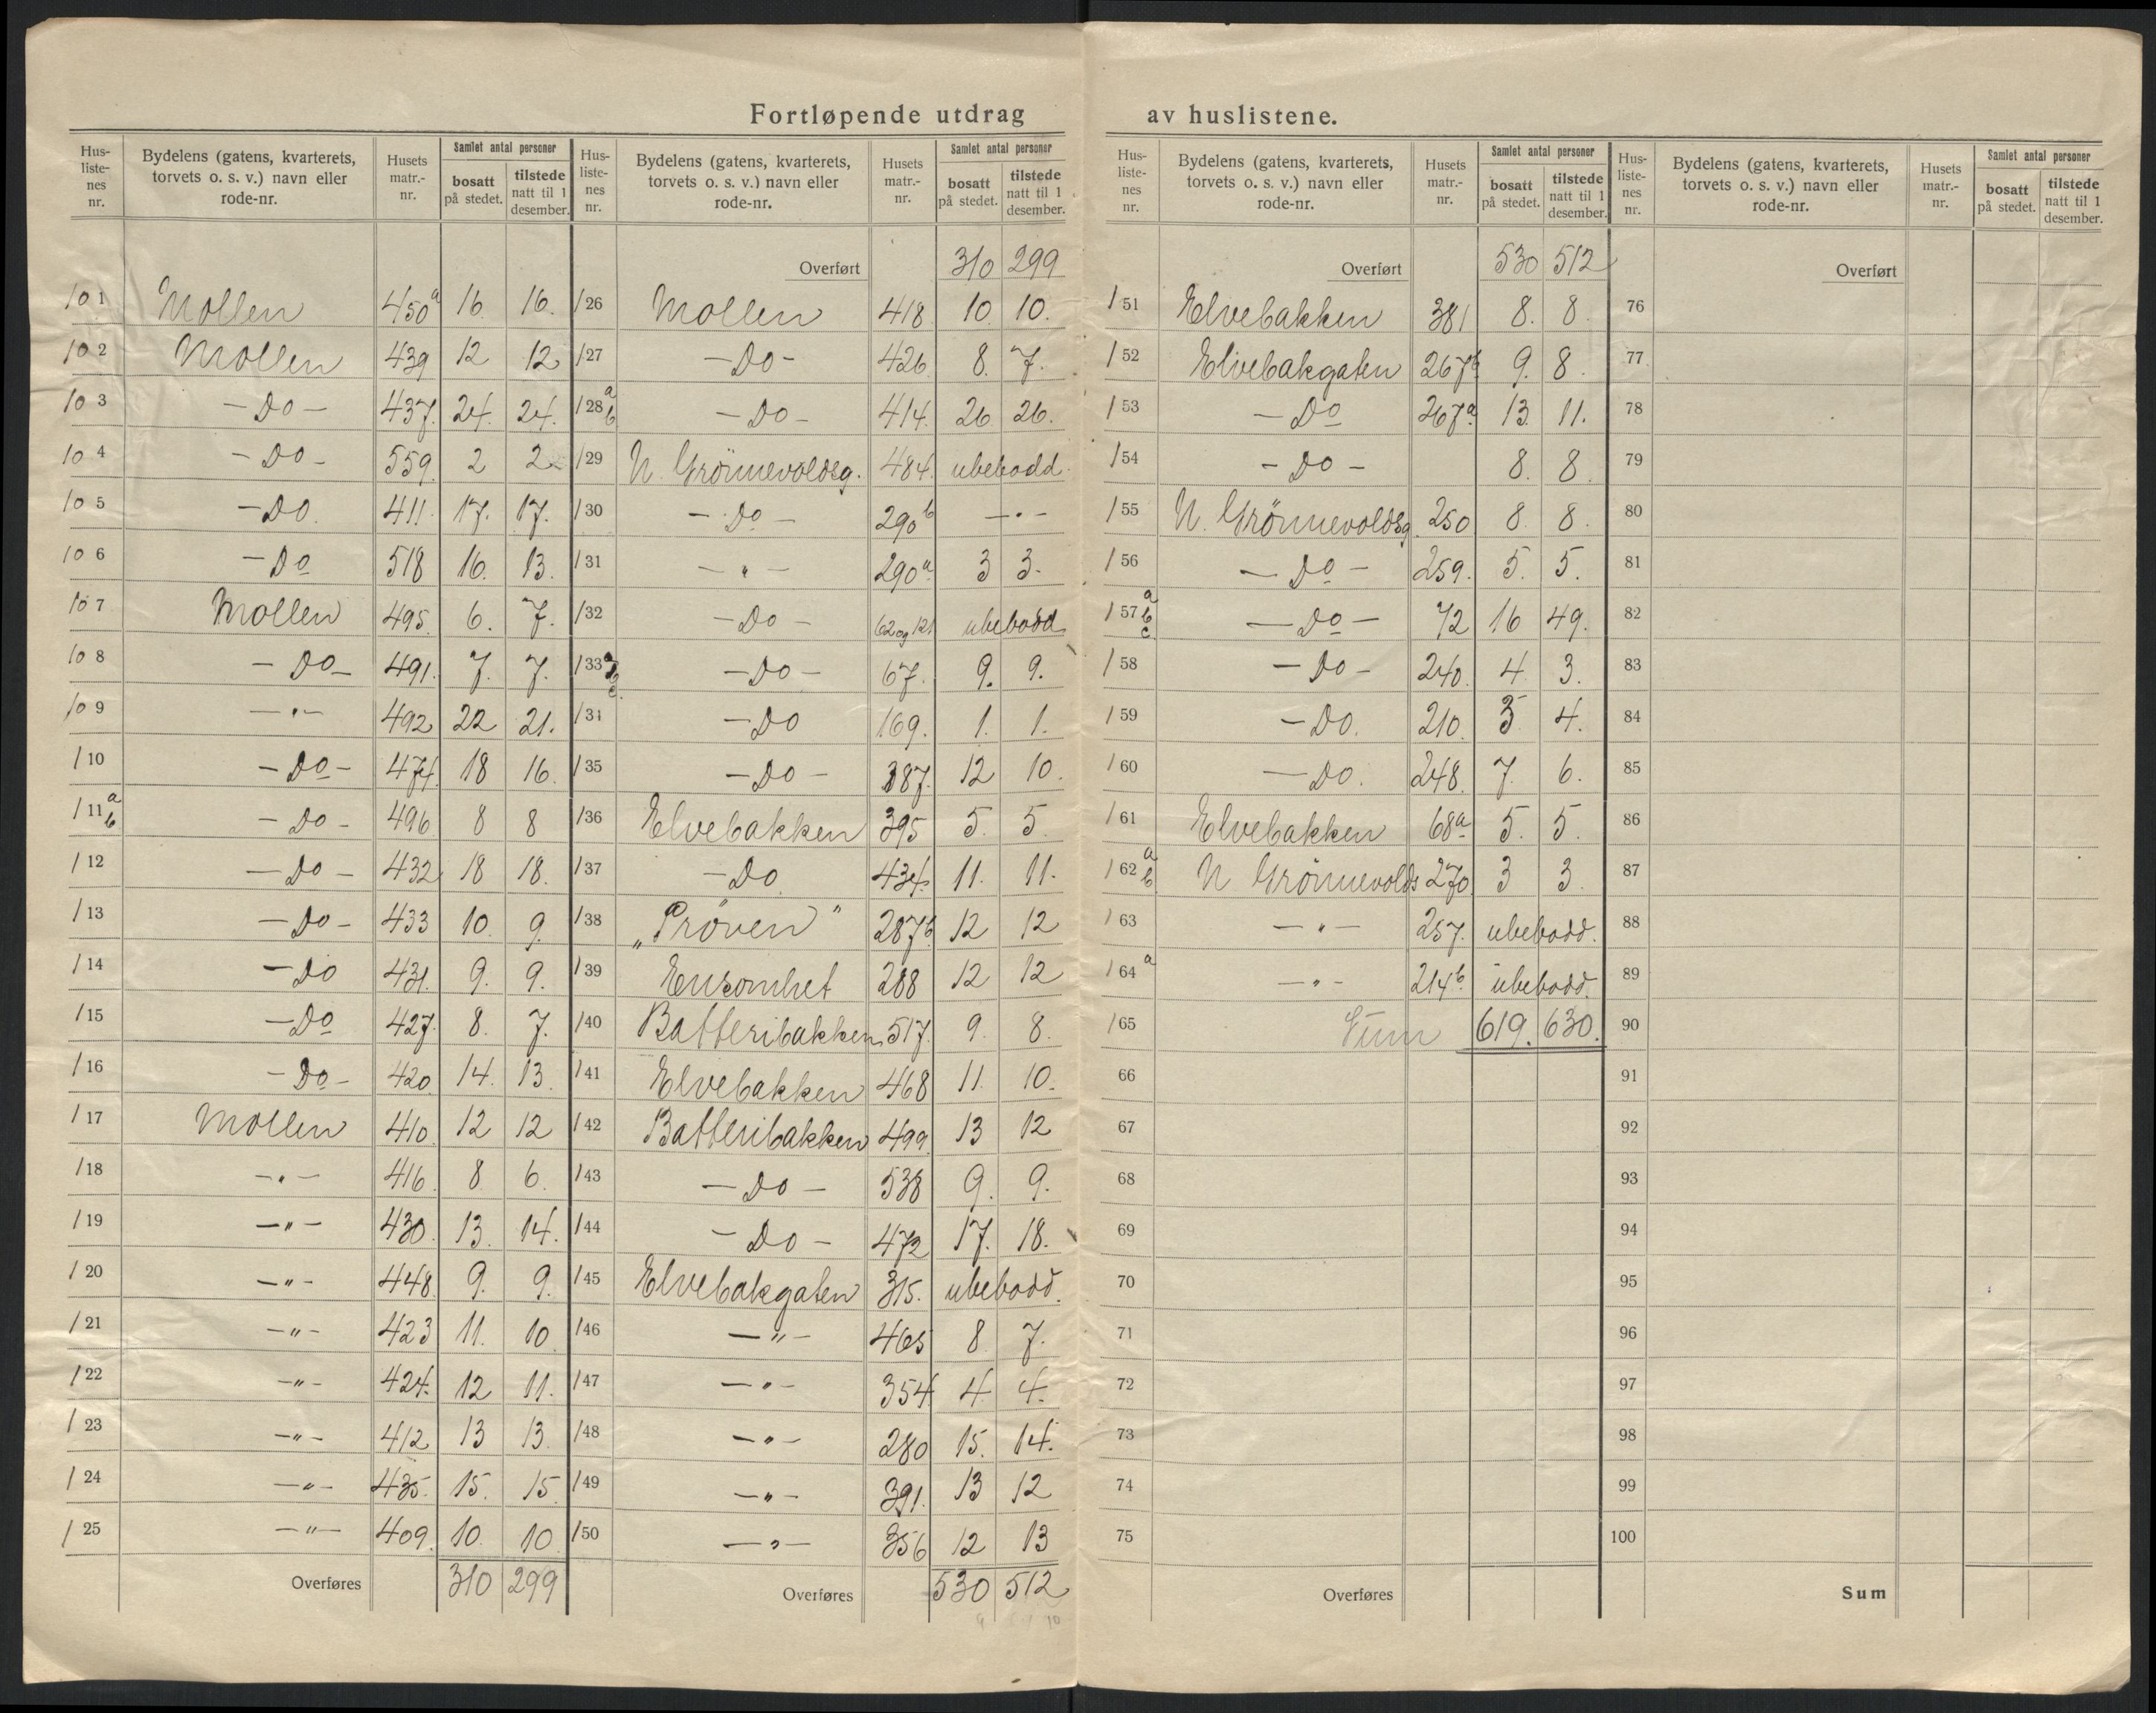 Fortløpende utdrag av huslistene.
Hus-liste-nes nr. Bydelens (gatens, kvarterets, torvets o. s. v.) navn eller rode-nr. Husets matr.-nr. Samlet antal personer bosatt på stedet. tilstede natt til 1 desember.
101 Mollen 450a 16. 16.
102 Mollen 439 12 12
103 — Do — 437. 24. 24.
104 — Do — 559. 2 2
105 — Do. 411. 17. 17.
106 — Do 518 16. 13.
107 Mollen 495. 6. 7.
108 — Do — 491. 7. 7.
109 — " — 492 22 21.
110 — Do — 474. 18 16.
111 a b — Do — 496 8 8
112 — Do — 432 18 18.
113 — Do — 433 10. 9.
114 — Do 431. 9. 9.
115 — Do 427. 8. 7.
116 — Do — 420 14. 13.
117 Mollen 410 12 12
118 — " — 416. 8 6.
119 — " — 430. 13. 14.
120 — " — 448. 9. 9.
121 — " — 423 11. 10
122 — " — 424. 12 11.
123 — " — 412 13 13.
124 — " — 435. 15. 15
125 — " — 409. 10. 10.
Overføres 310 299
Hus-liste-nes nr. Bydelens (gatens, kvarterets, torvets o. s. v.) navn eller rode-nr. Husets matr.-nr. Samlet antal personer bosatt på stedet. tilstede natt til 1 desember.
Overført 310 299
126 Mollen 418 10. 10.
127 — Do — 426 8. 7.
128 a b — Do — 414. 26 26.
129 N. Grönnevoldsg. 484. ubebodd.
130 — Do — 290b — " —
131 — " — 290a 3 3.
132 — Do — 62 og 121 ubebodd
133 — Do — 67. 9. 9.
134 — Do 169. 1. 1.
135 — Do — 387. 12 10.
136 Elvebakken 395 5. 5.
137 — Do. 434. 11. 11.
138 „Pröven" 287b 12 12
139 Ensomhet 288 12 12
140 Batteribakken 517. 9. 8.
141 Elvebakken 468 11. 10.
142 Batteribakken 499. 13 12
143 — Do — 538 9. 9.
144 — Do — 472 17. 18.
145 Elvebakgaten 315. ubebodd.
146 — " — 465 8 7.
147 — " — 354 4. 4.
148 — " — 280 15. 14.
149 — " — 391. 13 12
150 — " — 356 12 13
Overføres 530 512
Hus-liste-nes nr. Bydelens (gatens, kvarterets, torvets o. s. v.) navn eller rode-nr. Husets matr.-nr. Samlet antal personer bosatt på stedet. tilstede natt til 1 desember.
Overført 530 512
151 Elvebakken 381 8. 8.
152 Elvebakgaten 267b 9. 8.
153 — Do 267a 13. 11.
154 — Do — 8. 8.
155 N. Grönnevoldsg. 250 8. 8.
156 — Do — 259. 5. 5.
157 a b c — Do — 72 16 49.
158 — Do — 240. 4 3.
159 — Do. 210. 4.
160 — Do. 248. 7. 6.
161 Elvebakken 68a 5. 5.
162 a b N Grönnevolds 270 3 3.
163 — " — 257. ubebodd.
164 a — " — 214b. ubebodd.
165 Sum 619. 630.
66
67
68
69
70
71
72
73
74
75
Overføres
Hus-liste-nes nr. Bydelens (gatens, kvarterets, torvets o. s. v.) navn eller rode-nr. Husets matr.-nr. Samlet antal personer bosatt på stedet. tilstede natt til 1 desember.
Overført
76
77
78
79
80
81
82
83
84
85
86
87
88
89
90
91
92
93
94
95
96
97
98
99
100
Sum